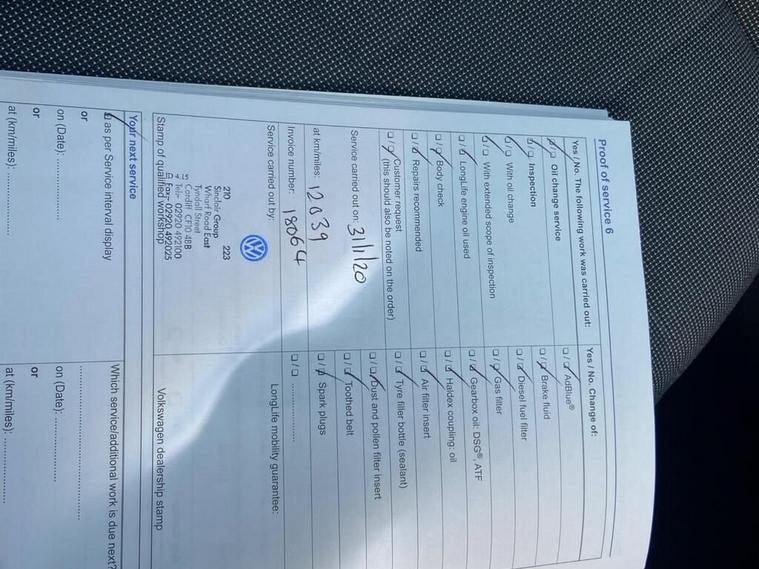 Proof of service 6
Yes / No. The following work was carried out:
☐ / ☐ Oil change service
☐ / ☐ Inspection
☐ / ☐ With oil change
☐ / ☐ With extended scope of inspection
☐ / ☐ LongLife engine oil used
☐ / ☐ Body check
☐ / ☐ Repairs recommended
☐ / ☐ Customer request
(this should also be noted on the order)
Service carried out on: 31/1/20
at km/miles: 12039
Invoice number: 18064
Service carried out by:
210 223
Sinclair Group
Wharf Road East
Tyndall Street
Cardiff CF10 4BB
Tel:- 02920 492100
Fax:- 02920 492025
Stamp of qualified workshop
Yes / No. Change of:
☐ / ☐ AdBlue®
☐ / ☐ Brake fluid
☐ / ☐ Diesel fuel filter
☐ / ☐ Gas filter
☐ / ☐ Gearbox oil: DSG®, ATF
☐ / ☐ Haldex coupling: oil
☐ / ☐ Air filter insert
☐ / ☐ Tyre filler bottle (sealant)
☐ / ☐ Dust and pollen filter insert
☐ / ☐ Toothed belt
☐ / ☐ Spark plugs
☐ / ☐ ....................
LongLife mobility guarantee:
Volkswagen dealership stamp
Your next service
☐ as per Service interval display
or
on (Date): ....................
or
at (km/miles): ....................
Which service/additional work is due next?
........................................
on (Date): ....................
or
at (km/miles): ....................